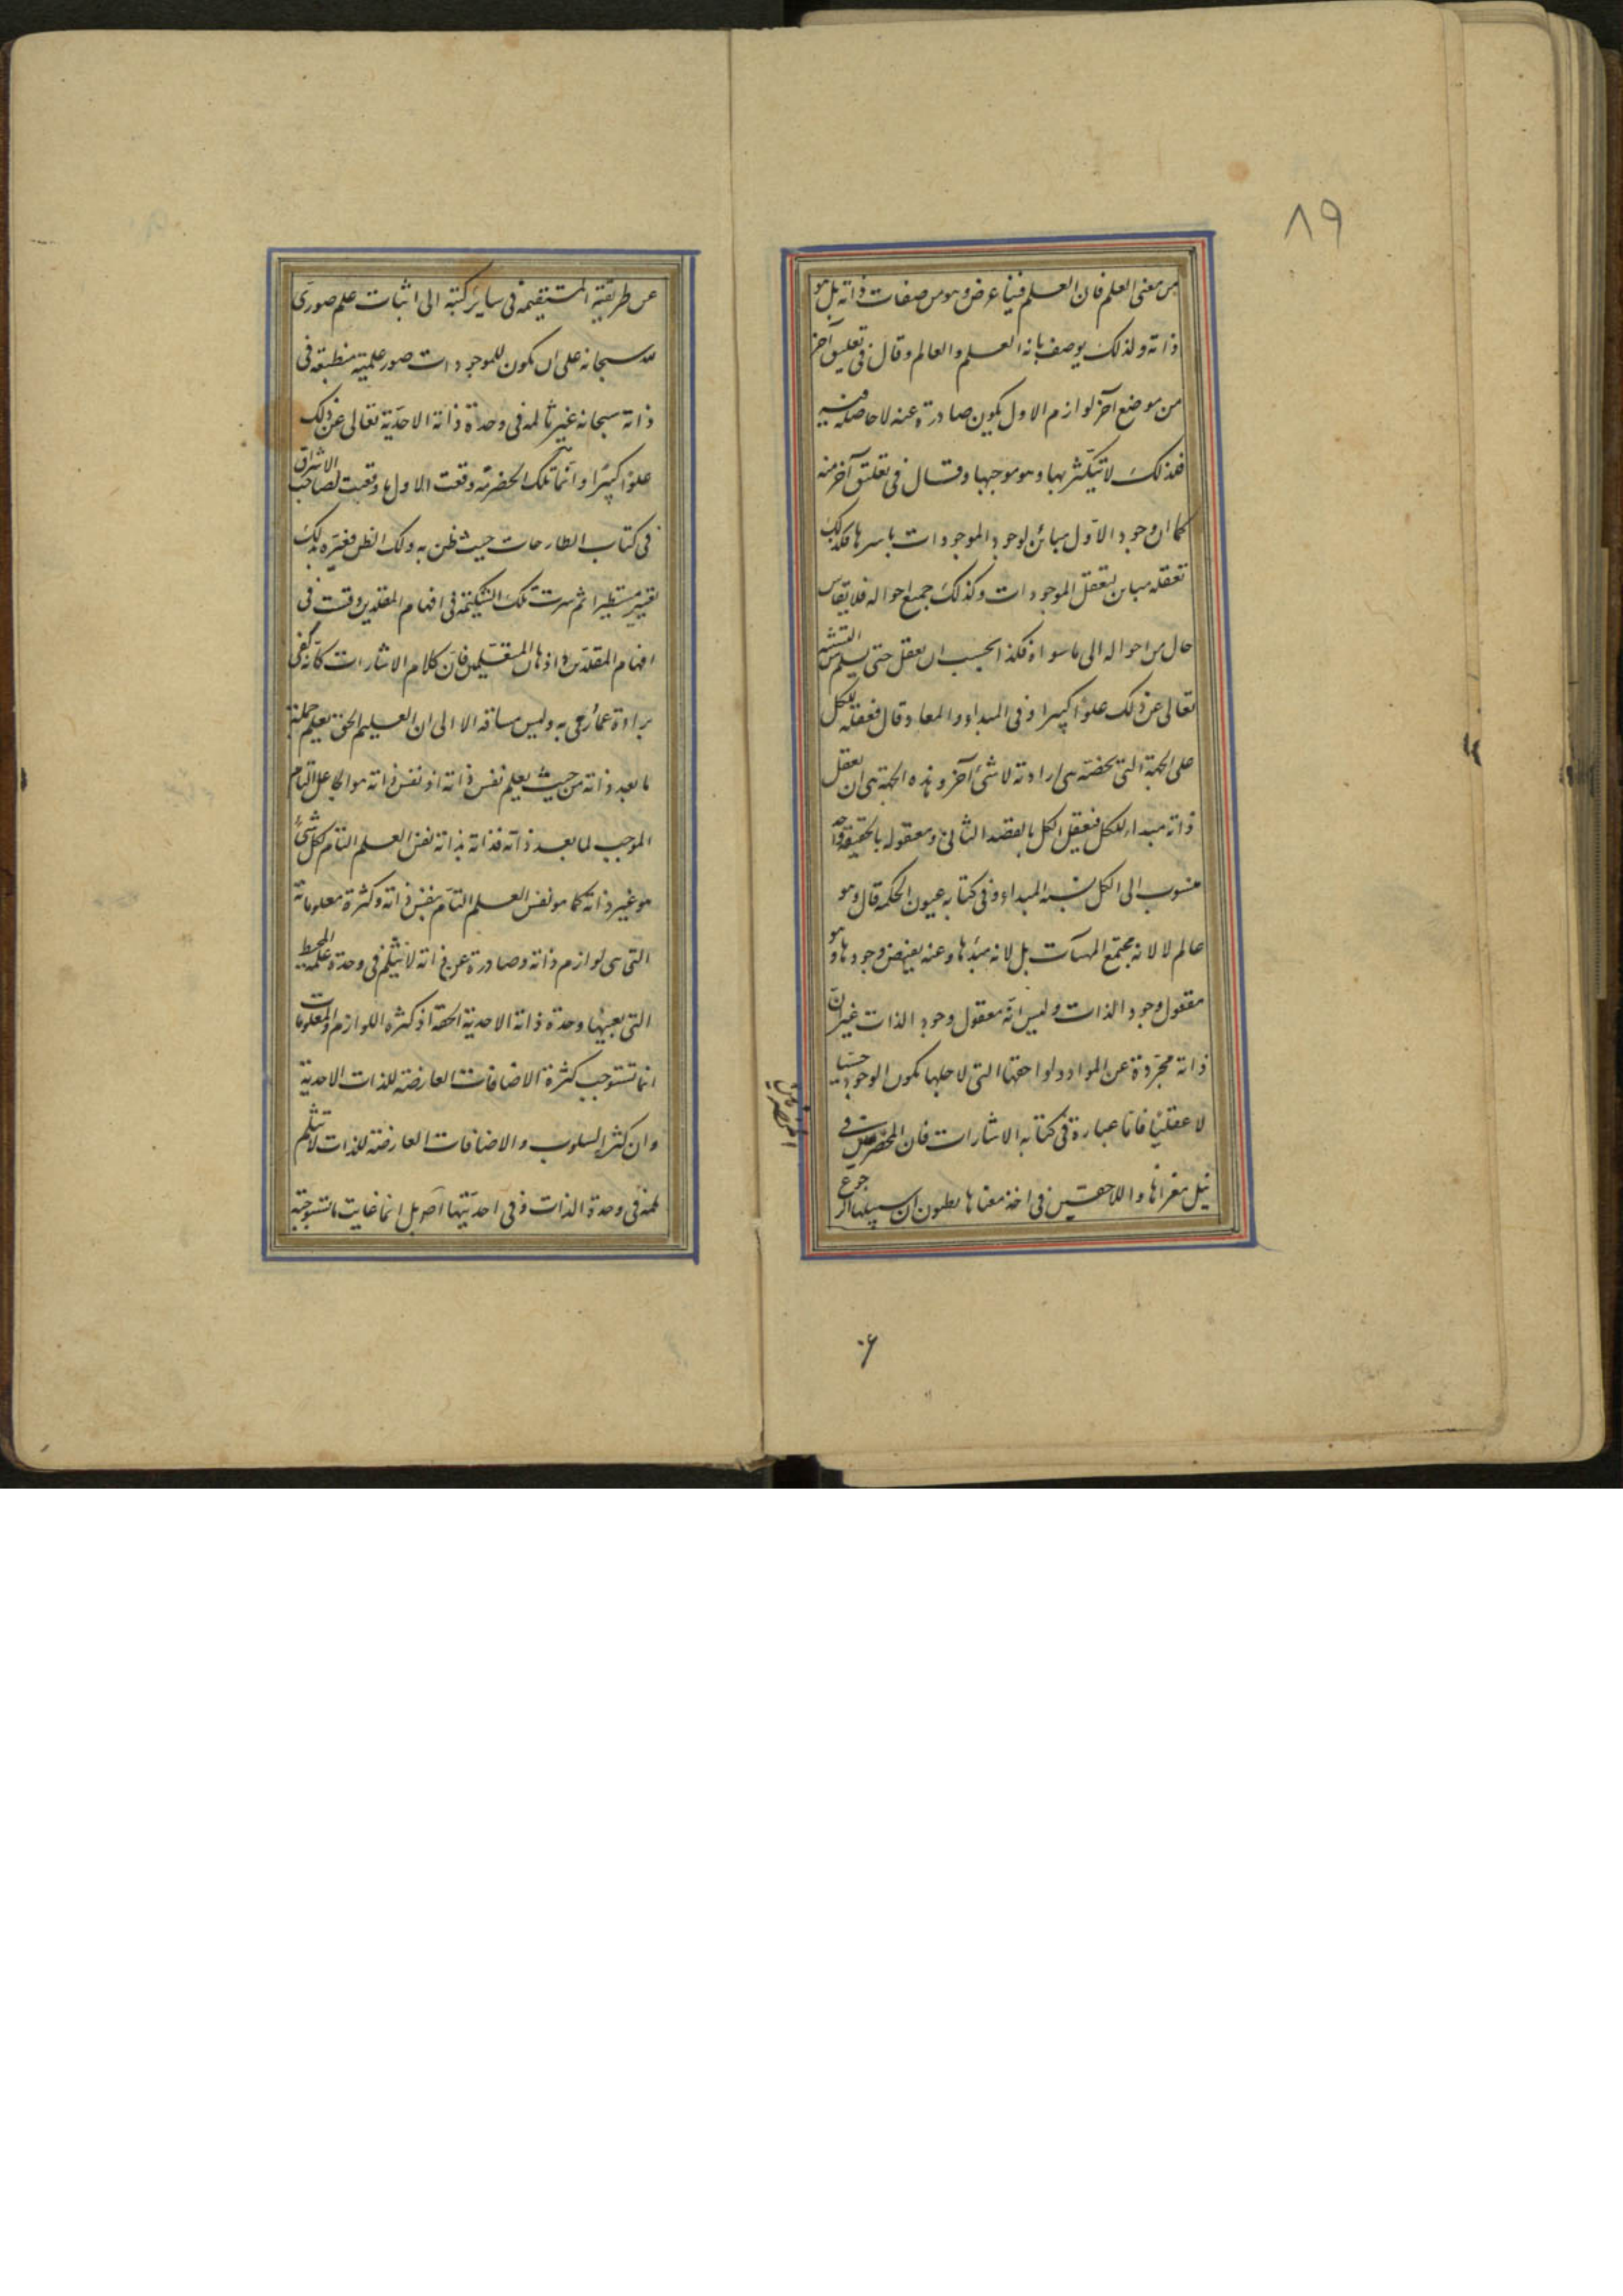 ۸۹
من معنى العلم فان العلم فينا عرض وهو من صفات ذاته بل هو
ذاته ولذلك يوصف بانه العلم والعالم وقال فى تعليق آخر
من موضع آخر لوازم الاول يكون صادرة عنه لا حاصلة فيه
فلذلك لا يتكثر بها وهو موجبها وقال فى تعليق آخر منه
كما ان وجود الاول مباين لوجود الموجودات باسرها فكذلك
تعقله مباين لتعقل الموجودات وكذلك جميع احواله فلا يقاس
حال من احواله الى ما سواه فكذا يجب ان يعقل حتى يسلم من التشبيه
تعالى عن ذلك علوا كبيرا وفى المبداء والمعاد قال فعقله للكل
على الجهة التى تخصه هى ارادته لا شئ آخر وهذه الجهة هى ان يعقل
ذاته مبداء للكل فيعقل الكل بالقصد الثانى ومعقوله بالحقيقة واحد
منسوب الى الكل نسبة المبداء وفى كتابه عيون الحكمة قال وهو
عالم لا لانه مجتمع المهيات بل لانه مبدءها وعنه يفيض وجودها وهو
معقول وجود الذات وليس انه معقول وجود الذات غير ان
ذاته مجردة عن المواد ولواحقها التى لاجلها يكون الوجود حسيا
لا عقليا فاما عبارة فى كتابه الاشارات فان المحضرمين فى
نيل مغزاها واللاحقين فى اخذ معناها يظنون ان سبيلها الرجوع
عن طريقته المستقيمة فى ساير كتبه الى اثبات علم صورى
لله سبحانه على ان يكون للموجودات صور علمية منطبعة فى
ذاته سبحانه غير ثالمة فى وحدة ذاته الاحدية تعالى عن ذلك
علوا كبيرا وانما تلك الحضرمة وقعت الاول ما وقعت لصاحب الاشراق
فى كتاب المطارحات حيث ظن به ذلك الظن فغيره بذلك
تغيير مستطيرا ثم سرت تلك الشكيمة فى افهام المقلدين وقت فى
افهام المقلدين واذهان المتفلسفين فان كلام الاشارات كانه كفى
براءة عما رمى به وليس مساقه الا الى ان العليم الحق يعلم جملة
ما بعد ذاته من حيث يعلم نفس ذاته اذ نفس ذاته هو الجاعل التام
الموجب لما بعد ذاته فذاته بذاته نفس العلم التام لكل شئ
هو غير ذاته كما هو نفس العلم التام بنفس ذاته وكثرة معلوماته
التى هى لوازم ذاته وصادرة عن ذاته لا ينثلم فى وحدة علمه المحيط
التى بعينها وحدة ذاته الاحدية الحقة اذ كثرة اللوازم والمعلومات
انما تستوجب كثرة الاضافات العارضة للذات الاحدية
وان كثرة السلوب والاضافات العارضة للذات لا تثلم
ثلمة فى وحدة الذات وفى احديتها اصلا بل انما غايت ما تستوجبه